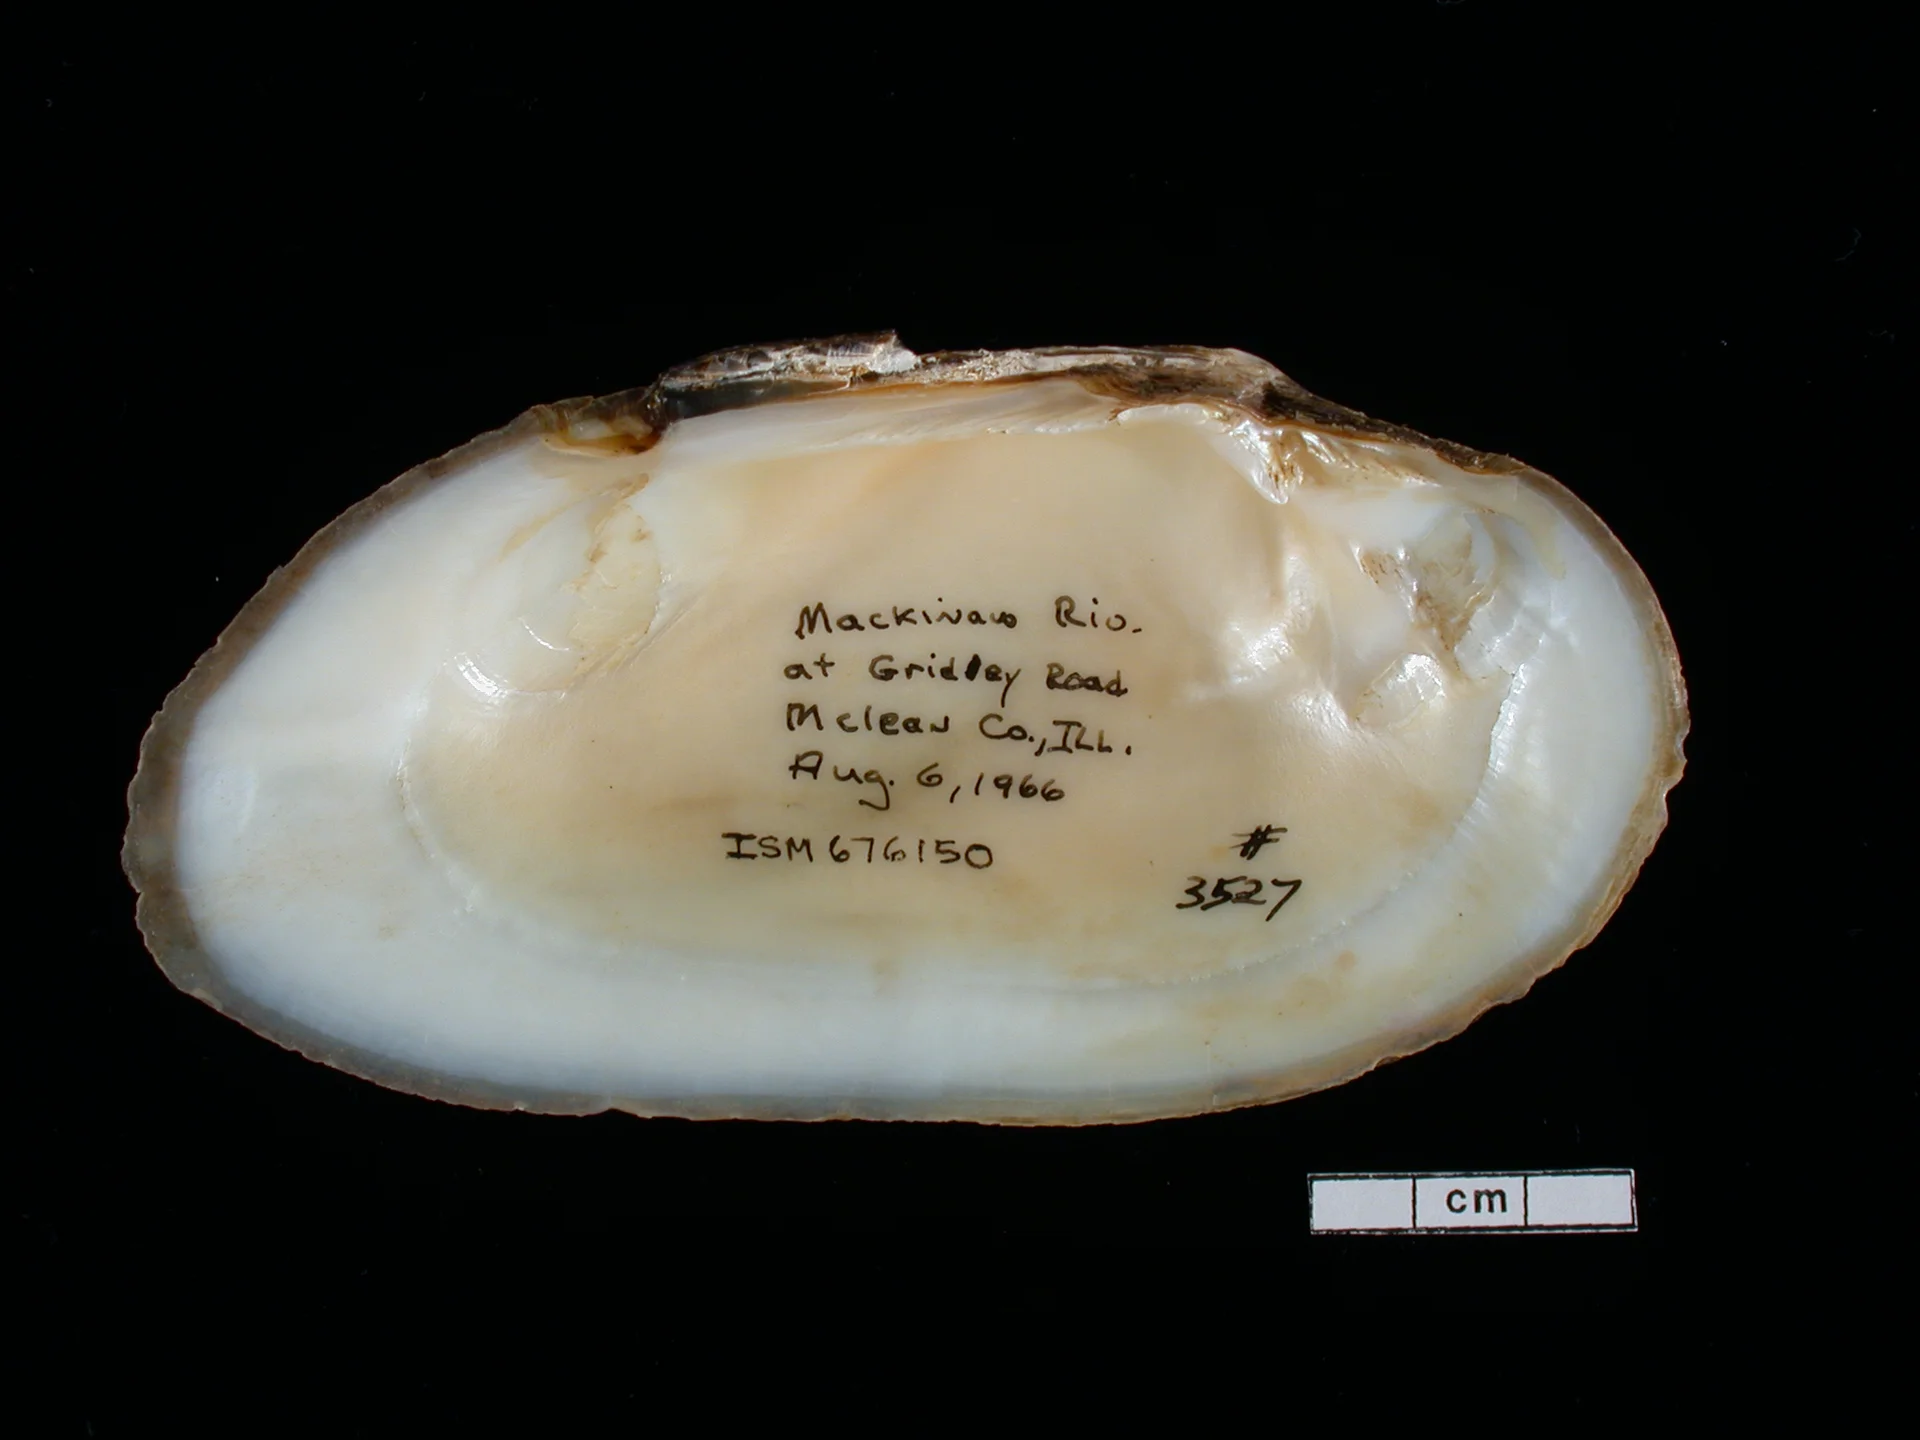 Mackinaw Riv.
at Gridley Road
Mclean Co., ILL.
Aug. 6, 1966
ISM 676150
#
3527
cm